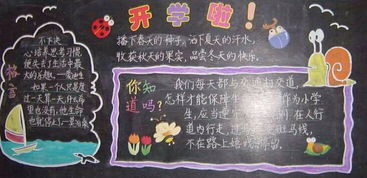 开学啦！
播下春天的种子，洒下夏天的汗水，
收获秋天的果实，品尝冬天的快乐。
格言
不下决
心培养思考习惯，
便失去了生活中最
大的乐趣。—爱迪生
如果一个人只是度
过一天算一天，什么希
望也没有，他生命
也就停止了。
你知
道吗？
我们每天都与交通打交道，
怎样才能保障生 作为小学
生，应当遵 间：在人行
道内行走，过 走斑马线，
不在路上嬉戏